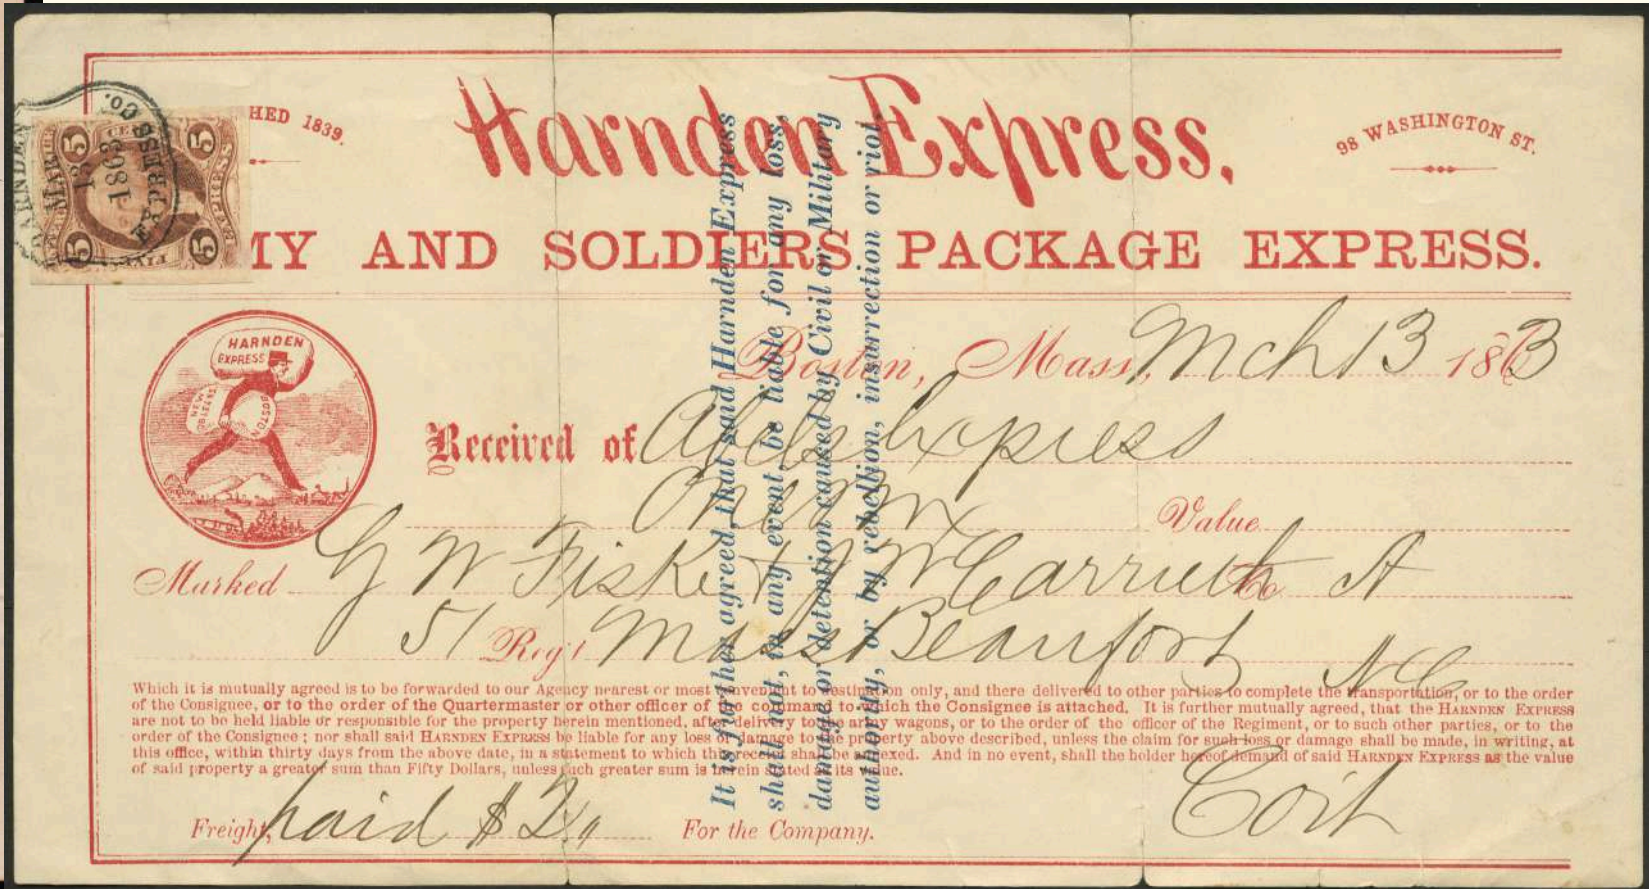 HED 1839.
Harnden Express,
98 WASHINGTON ST.
MY AND SOLDIERS PACKAGE EXPRESS.
HARNDEN
EXPRESS CO.
MAR
13
1863
5 5
5 5
HARNDEN
EXPRESS
BOSTON
Boston, Mass, Mch 13 1863
Received of Express
One Value
Marked G W Fiske & J W Carruth Co A
51 Reg't Mass Beaufort N C
Which it is mutually agreed is to be forwarded to our Agency nearest or most convenient to destination only, and there delivered to other parties to complete the transportation, or to the order
of the Consignee, or to the order of the Quartermaster or other officer of the command to which the Consignee is attached. It is further mutually agreed, that the HARNDEN EXPRESS
are not to be held liable or responsible for the property herein mentioned, after delivery to the army wagons, or to the order of the officer of the Regiment, or to such other parties, or to the
order of the Consignee; nor shall said HARNDEN EXPRESS be liable for any loss or damage to the property above described, unless the claim for such loss or damage shall be made, in writing, at
this office, within thirty days from the above date, in a statement to which this receipt shall be annexed. And in no event, shall the holder hereof demand of said HARNDEN EXPRESS as the value
of said property a greater sum than Fifty Dollars, unless such greater sum is herein stated as its value.
Freight, paid $2 For the Company. Coit
It is further agreed, that said Harnden Express
shall not, in any event, be liable for any loss,
damage or detention caused by Civil or Military
authority, or by rebellion, insurrection or riot.